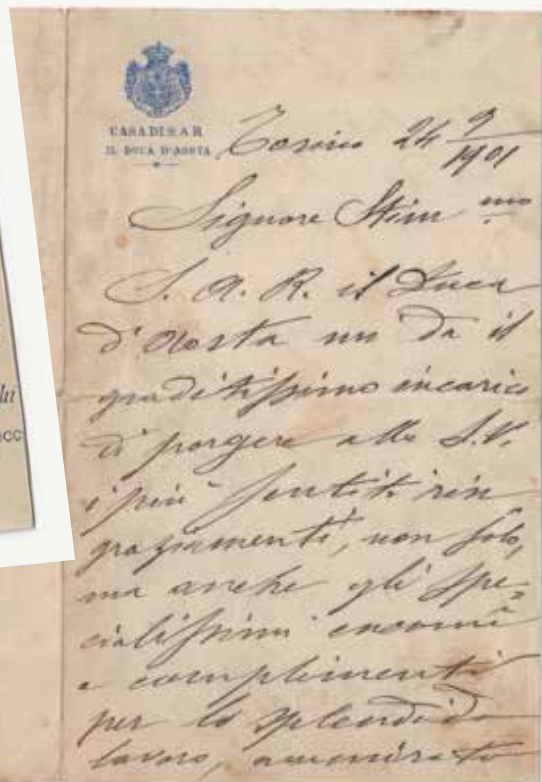 hi
CC
CASA DI S.A.R.
IL DUCA D'AOSTA
Torino 24 9/1901
Signore Stim mo
S. A. R. il Duca
d'Aosta mi dà il
graditissimo incarico
di porgere alla S.V.
i più sentiti rin
graziamenti, non solo,
ma anche gli spe=
cialissimi encomi
e complimenti
per lo splendido
lavoro, ammirato